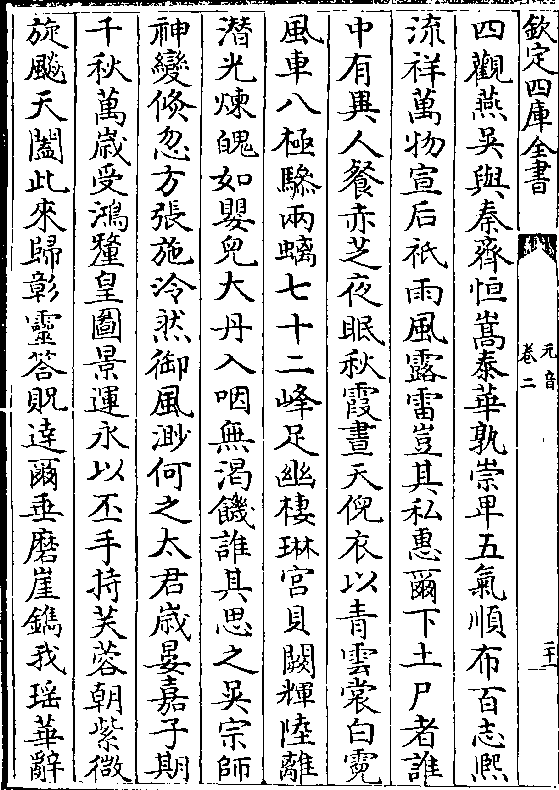 欽定四庫全書
元音
卷二
二十一
四觀燕吳與秦齊恒嵩泰華孰崇卑五氣順布百志熈
流祥萬物宣后祇雨風露雷豈其私惠爾下土尸者誰
中有異人餐赤芝夜眠秋霞晝天倪衣以青雲裳白霓
風車八極驂兩螭七十二峰足幽棲琳宮貝闕輝陸離
潛光煉魄如嬰兒大丹入咽無渇饑誰其思之吳宗師
神變倐忽方張施泠然御風渺何之太君歲晏嘉子期
千秋萬歲受鴻釐皇圖景運永以丕手持芙蓉朝紫微
旋飇天闔此來歸彰靈答貺逹爾垂磨崖鐫我瑶華辭